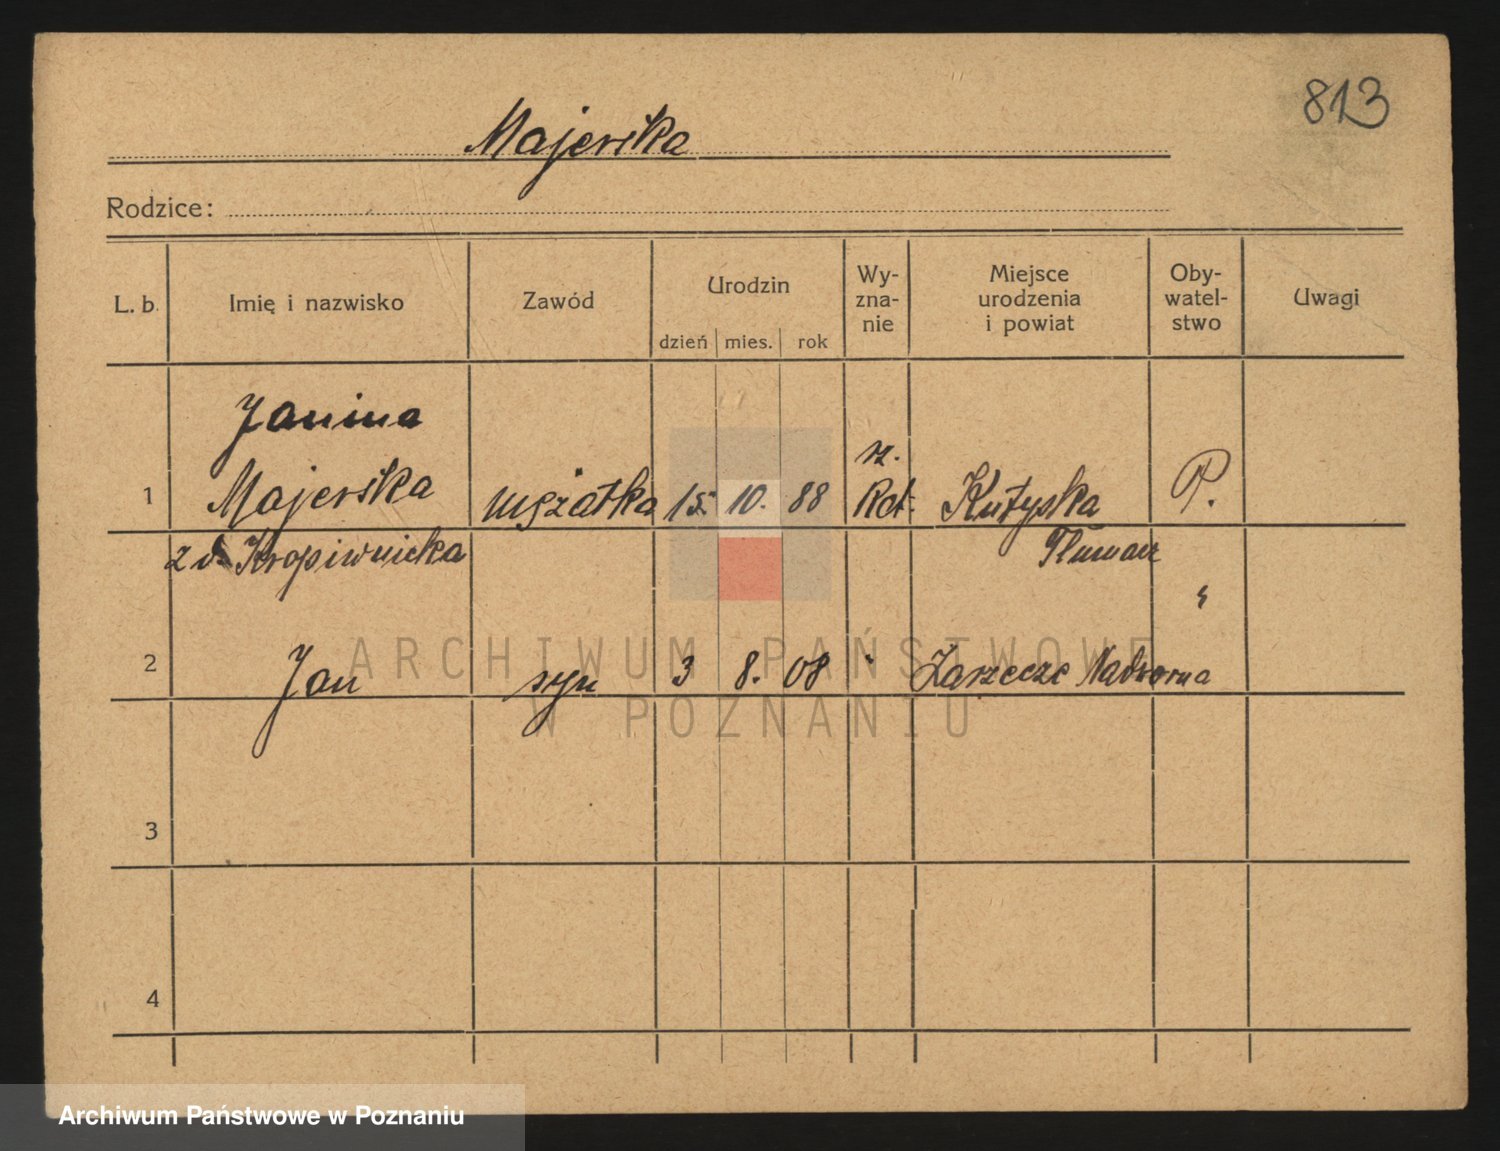 813
Majerska
Rodzice:
L. b. Imię i nazwisko Zawód Urodzin dzień mies. rok Wy-zna-nie Miejsce urodzenia i powiat Oby-watel-stwo Uwagi
Janina
rz.
1 Majerska mężatka 15. 10. 88 Kat. Kutyska P.
z d. Kropiwnicka Tłumacz
"
2 Jan syn 3 8. 08 " Zarzecze Nadworna
3
4
ARCHIWUM PAŃSTWOWE
W POZNANIU
Archiwum Państwowe w Poznaniu